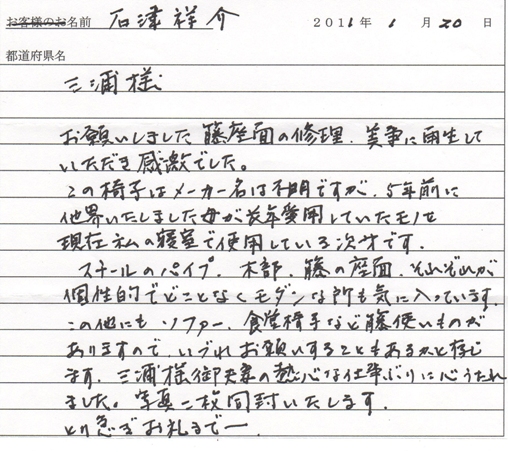 お客様のお名前 石津祥介 2011年 1月 20日
都道府県名
三浦様
お願いしました藤座面の修理、美事に再生して
いただき感激でした。
この椅子はメーカー名は不明ですが、5年前に
他界いたしました母が長年愛用していたモノを
現在私の寝室で使用している次才です。
スチールのパイプ、木部、藤の座面、それぞれが
個性的でどことなくモダンな所も気に入っています。
この他にもソファー、食堂椅子など藤使いものが
ありますので、いづれお願いすることもあるかと存じ
ます。三浦様御夫妻の熱心な仕事ぶりに心うたれ
ました。写真二枚同封いたします。
とり急ぎお礼まで一